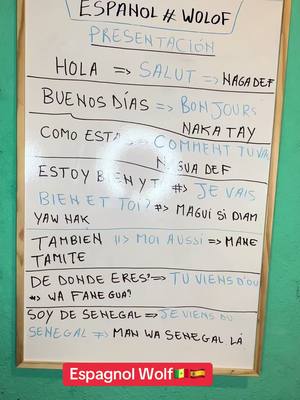 ESPAÑOL # WOLOF
PRESENTACIÓN
HOLA => SALUT => NAGADEF
BUENOS DÍAS => BONJOURS
NAKA TAY
COMO ESTAS => COMMENT TU VAS
NAGUA DEF
ESTOY BIEN Y TU #> JE VAIS
BIEN ET TOI? #> MAGUI SI DIAM
YAW NAK
TAMBIEN => MOI AUSSI => MANE
TAMITE
DE DONDE ERES? => TU VIENS D'OU
=> WA FANE GUA?
SOY DE SENEGAL => JE VIENS DU
SENEGAL => MAN WA SENEGAL LÀ
Espagnol Wolf🇸🇳🇪🇸